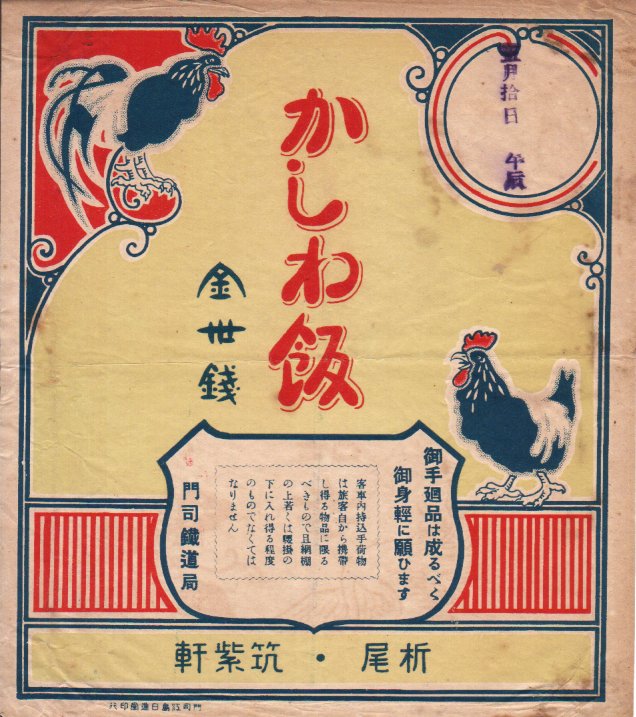 五月拾日
かしわ飯
金丗錢
御手廻品は成るべく
御身輕に願ひます
客車内持込手荷物
は旅客自から携帶
し得る物品に限る
べきもので且網棚
の上若くは腰掛の
下に入れ得る程度
のものでなくては
なりません
門司鐵道局
折尾・筑紫軒